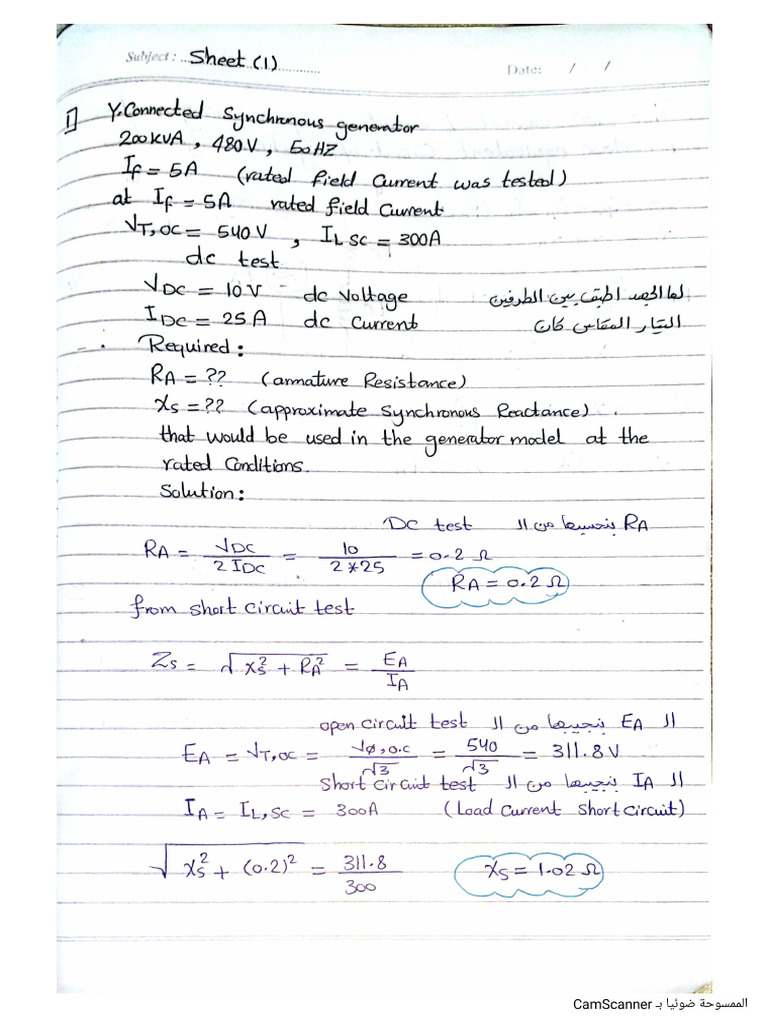 Subject: Sheet (1) Date: / /
1] Y-Connected Synchronous generator
200KVA , 480V , 50HZ
If = 5A (rated field Current was tested)
at If = 5A rated field Current
VT,OC = 540V , IL SC = 300A
dc test
VDC = 10V dc Voltage لما الجهد اطبق بين الطرفين
IDC = 25A dc Current التيار المقاس كان
Required:
RA = ?? (armature Resistance)
Xs = ?? (approximate Synchronous Reactance).
that would be used in the generator model at the
rated Conditions.
Solution:
RA بنحسبها من ال DC test
RA = VDC / 2 IDC = 10 / 2*25 = 0.2 Ω
RA = 0.2 Ω
from short circuit test
Zs = √(Xs² + RA²) = EA / IA
ال EA بنجيبها من ال open circuit test
EA = VT,OC = Vø,O.C / √3 = 540 / √3 = 311.8 V
ال IA بنجيبها من ال Short Circuit test
IA = IL,SC = 300A (Load Current Short Circuit)
√(Xs² + (0.2)²) = 311.8 / 300 Xs = 1.02 Ω
الممسوحة ضوئيا بـ CamScanner